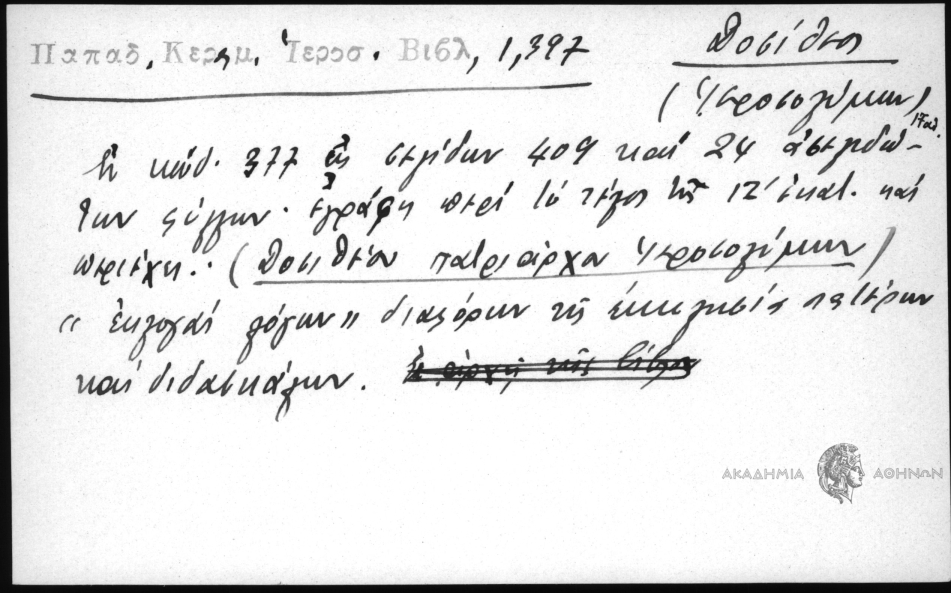 Παπαδ. Κεραμ. Ἱεροσ. Βιβλ, 1,397
Δοσίθεος
(Ἱεροσολύμων)
17 αἰ.
Ἐν κώδ. 377 ἐκ σελίδων 409 καὶ 24 ἀσελιδώ-
των φύλλων. ἐγράφη περὶ τὸ τέλος τῆς 17' ἑκατ. καὶ
περιέχει.. (Δοσιθέου πατριάρχου Ἱεροσολύμων)
"ἐκλογαὶ λόγων" διαφόρων τῆς ἐκκλησίας πατέρων
καὶ διδασκάλων. Ἐν ἀρχῇ τῆς βίβλου
ΑΚΑΔΗΜΙΑ ΑΘΗΝΩΝ